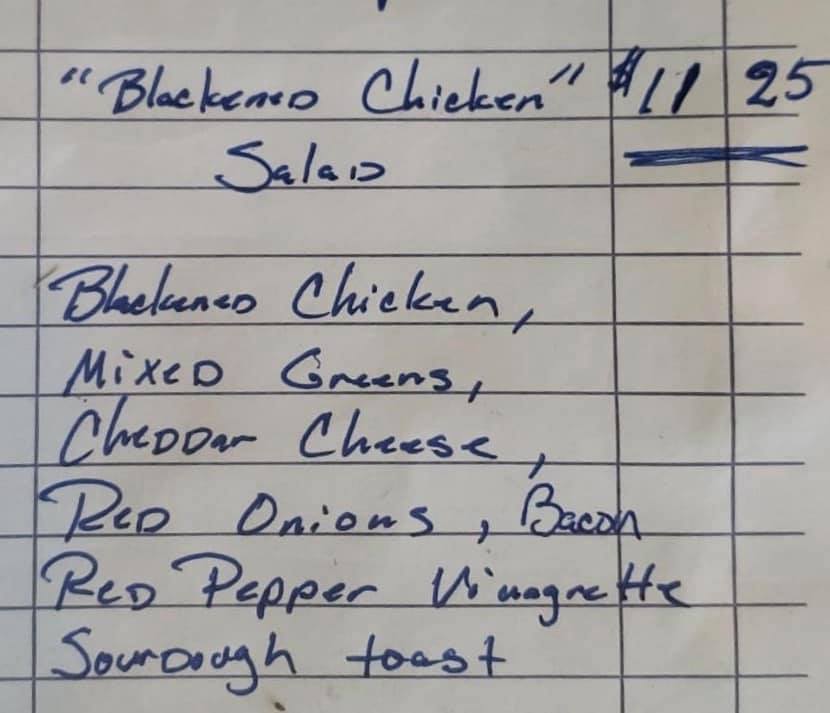 "Blackened Chicken" $11 25
Salad
Blackened Chicken,
Mixed Greens,
Cheddar Cheese,
Red Onions, Bacon
Red Pepper Vinagrette
Sourdough toast